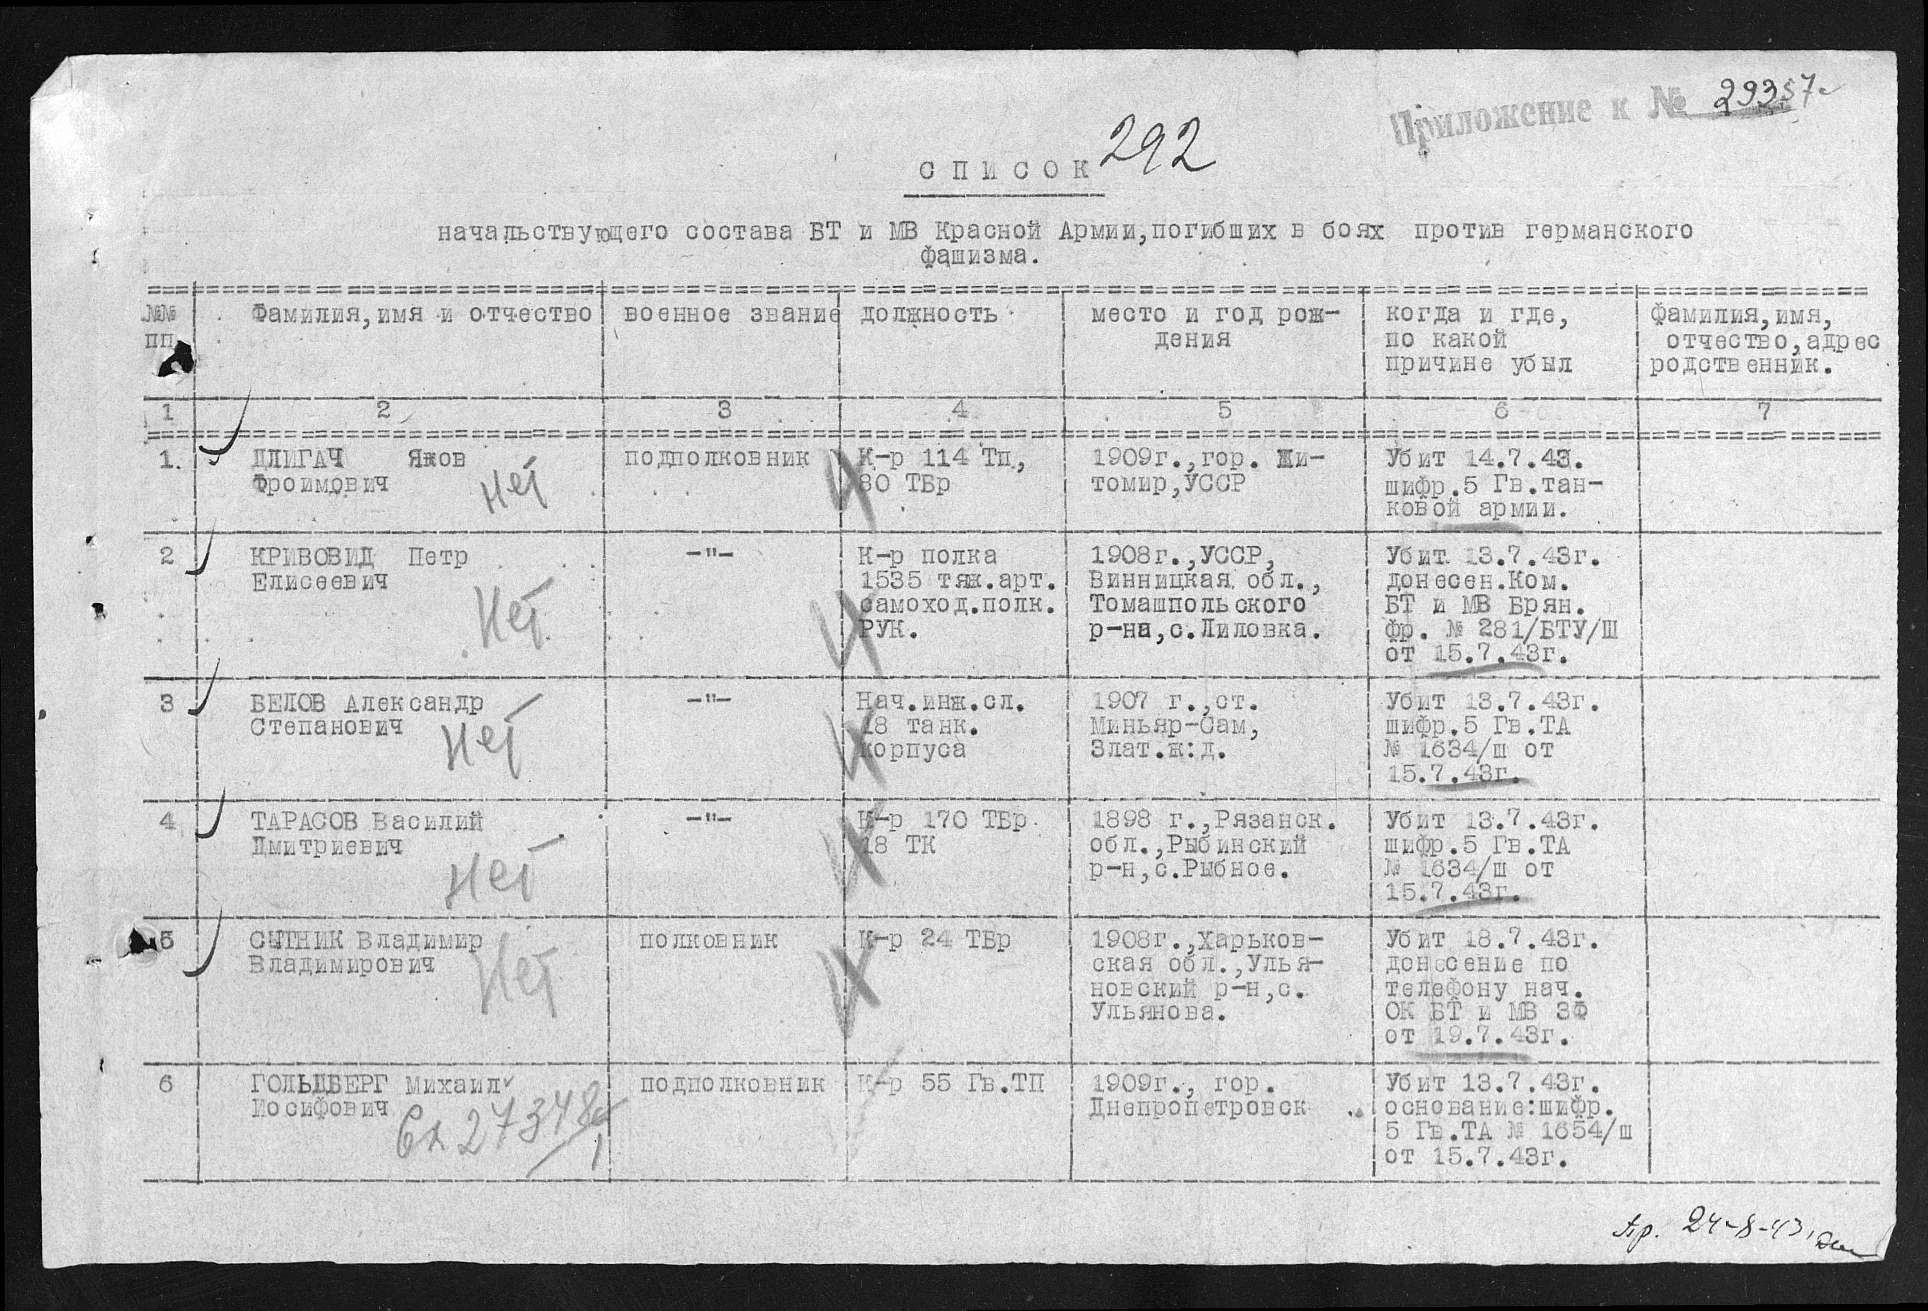 Приложение к № 29357с
СПИСОК 292
начальствующего состава БТ и МВ Красной Армии,погибших в боях против германского
фашизма.
№№
пп
Фамилия,имя и отчество
военное звание
должность
место и год рож-
дения
когда и где,
по какой
причине убыл
фамилия,имя,
отчество,адрес
родственник.
1 2 3 4 5 6 7
1.
ДЛИГАЧ Яков
Фроимович
Нет
подполковник
К-р 114 Тп,
80 ТБр
1909г.,гор. Жи-
томир,УССР
Убит 14.7.43.
шифр.5 Гв.тан-
ковой армии.
2
КРИВОВИД Петр
Елисеевич
Нет
-"-
К-р полка
1535 тяж.арт.
самоход.полк.
РУК.
1908г.,УССР,
Винницкая обл.,
Томашпольского
р-на,с.Липовка.
Убит 13.7.43г.
донесен.Ком.
БТ и МВ Брян.
фр. № 281/БТУ/Ш
от 15.7.43г.
3
БЕЛОВ Александр
Степанович
Нет
-"-
Нач.инж.сл.
18 танк.
корпуса
1907 г.,ст.
Миньяр-Сам,
Злат.ж:д.
Убит 13.7.43г.
шифр.5 Гв.ТА
№ 1634/ш от
15.7.43г.
4
ТАРАСОВ Василий
Дмитриевич
Нет
-"-
К-р 170 ТБр
18 ТК
1898 г.,Рязанск.
обл.,Рыбинский
р-н,с.Рыбное.
Убит 13.7.43г.
шифр.5 Гв.ТА
№ 1634/ш от
15.7.43г.
5
СЫТНИК Владимир
Владимирович
Нет
полковник
К-р 24 ТБр
1908г.,Харьков-
ская обл.,Улья-
новский р-н,с.
Ульянова.
Убит 18.7.43г.
донесение по
телефону нач.
ОК БТ и МВ ЗФ
от 19.7.43г.
6
ГОЛЬДБЕРГ Михаил
Иосифович
27348с
подполковник
К-р 55 Гв.ТП
1909г., гор.
Днепропетровск
Убит 13.7.43г.
основание:шифр.
5 Гв.ТА № 1654/ш
от 15.7.43г.
24-8-43